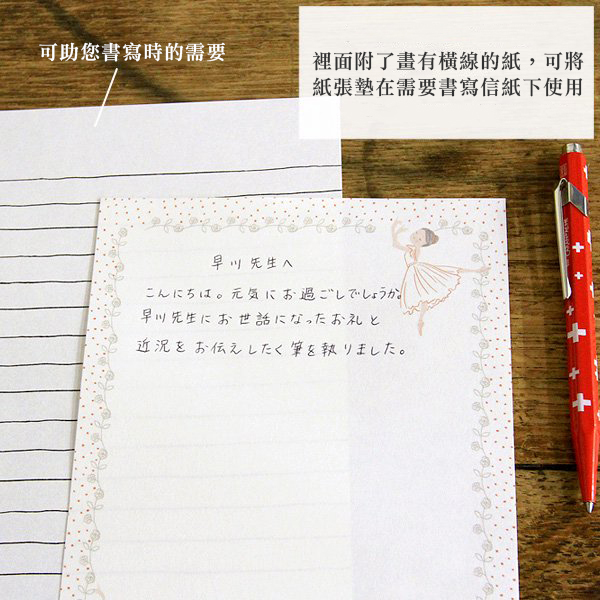 可助您書寫時的需要
裡面附了畫有橫線的紙，可將
紙張墊在需要書寫信紙下使用
早川先生へ
こんにちは。元気にお過ごしでしょうか。
早川先生にお世話になったお礼と
近況をお伝えしたく筆を執りました。